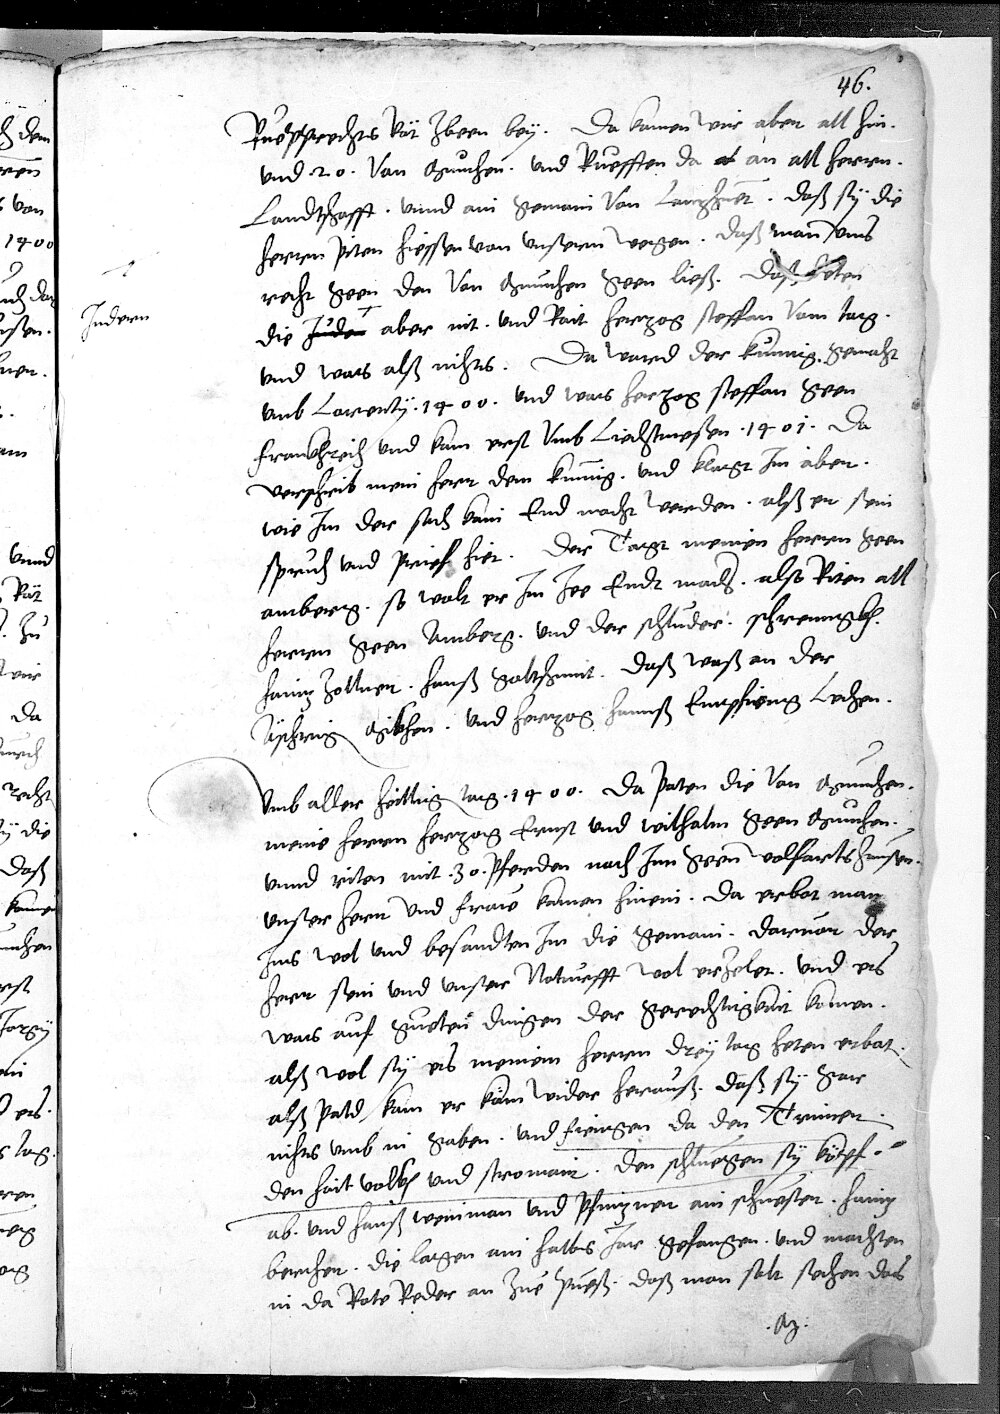 46.
Ruepprechts Rät zben bey. Da kamen wir aber all hin.
und 20. Von München. und Ruefften da an all herrn.
Landtschafft. unnd ain gemain Von Lanzhuet. daß sy die
herren piten hiessen von unserm wegen. daß mann uns
recht geen den Von München geen ließ. daß teten
die aber nit. und Rait herzog steffan Vom tag.
Indern
und wars alß nichts. Da ward der künnig gemacht
umb Lorentzy. 1400. und wars herzog steffan geen
Frankhreich und kam erst Umb Liechtmessen. 1401. Da
verschrib mein herr dem künnig. und klagt Im aber.
wie Im der sach kain End macht werden. alß er sein
spruch und prief hiet. Der Tagt meinen herren geen
amberg. so wolt er Im Ee Endt mach. also Riten all
herren geen Amberg. und der schluder. schrenngkh.
hainz zollner. hanß goltschmit. daß waß an der
Äschrig Mitichen. und herzog hannß Empfieng Lechen.
Umb aller heillig tag. 1400. Da paten die Von München.
meine herren herzog Ernst und wilhalm geen München.
unnd riten mit. 30. Pferden nach Inn geen wolfartshausen.
unser herr und fraue kamen hinein. da erbot man
Ims wol und besandten Im die gemain. darvor der
herr sein und unser Noturfft wol erzelet. und es
wars auf gueten dingen der gerechtigkait komen.
alß wol sy es meinem herren drey tag heten erbat.
alß pald kam er kam wider herauß. daß sy gar
nichts umb in gaben. und fiengen da den Triener.
den hait volkh und stromair. den schluegen sy köpf
ab. und hanß weinman und Pfinzner ain schuester. hainz
bercher. die lagen ain halbs Jar gefangen. und machten
in da Rote Reder an zue pueß. daß man solt sechen das